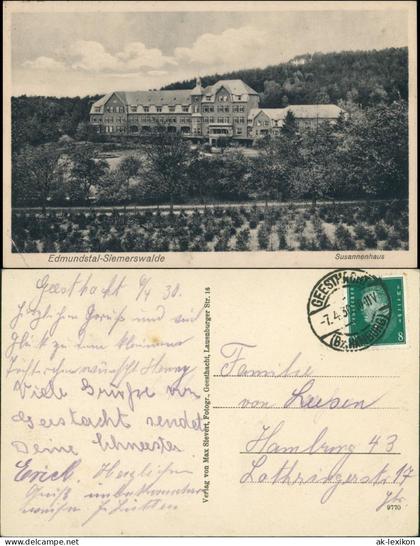 Edmundstal-Siemerswalde
Susannenhaus
Geesthacht 6/4 30.
GEESTHACHT
-7.4.30
(Bz. Hamburg)
8
Herzlichen Gruß und viel
Glück zu dem kleinen
wünscht Henny
Viele Grüße von
Geestacht sendet
Deine Schwester
Erich. Herzlichen
Gruß unbekannter
Verlag von Max Sievert, Fotogr., Geesthacht, Lauenburger Str. 16
Familie
von
Hamburg 43
Lothringerstr. 17
9770
ak-lexikon.com